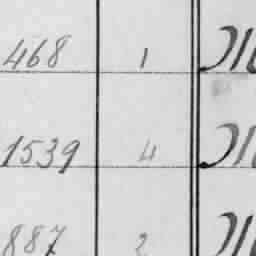 468 1
1539 4
887 2